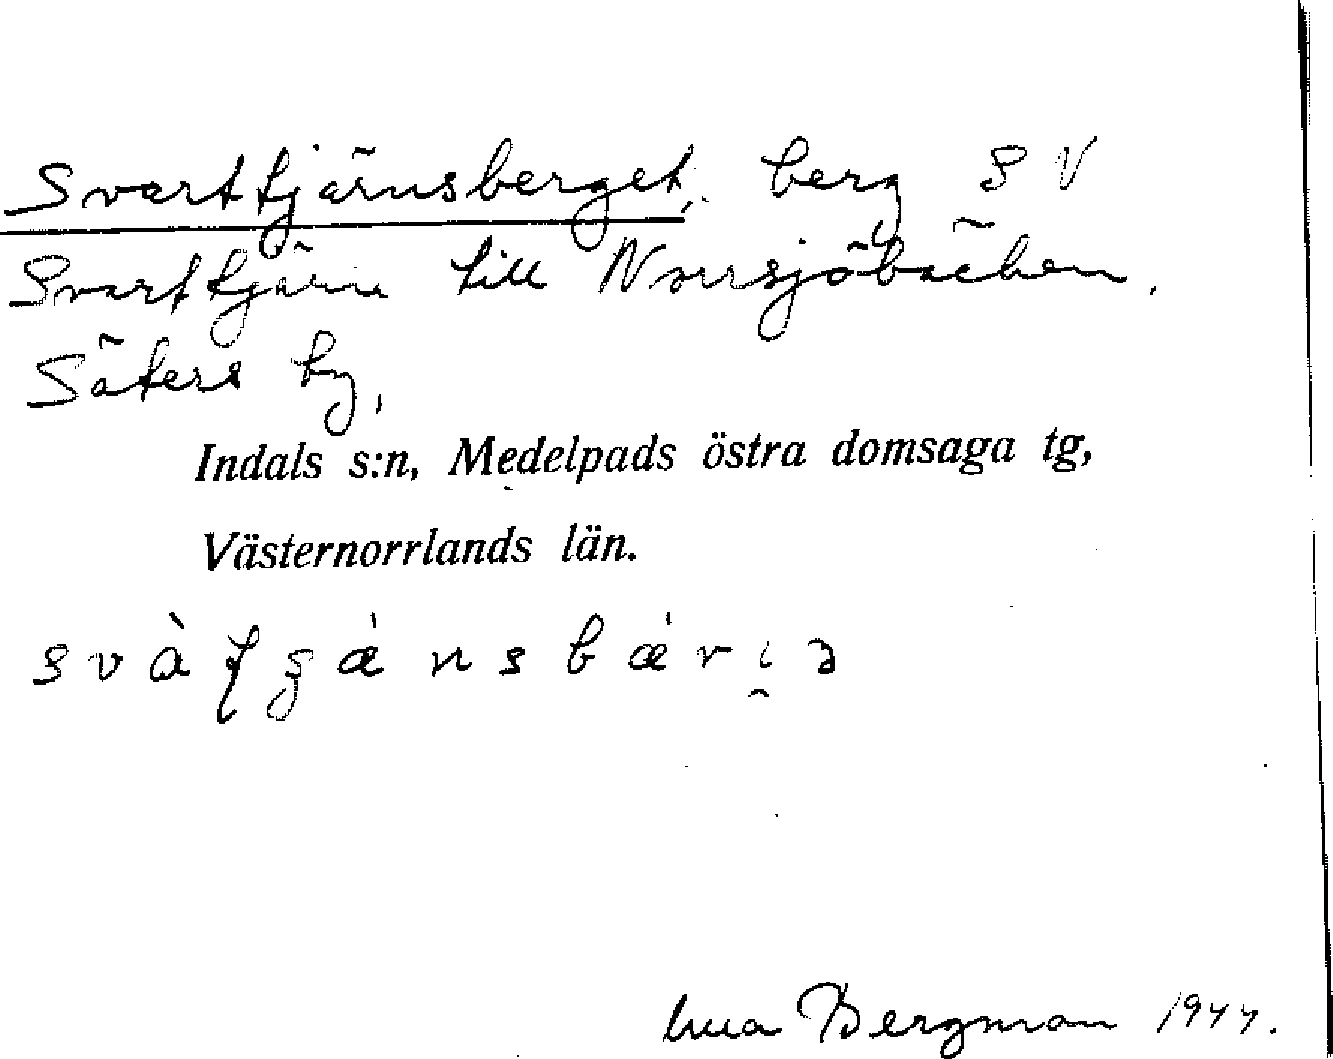 Svarttjärnsberget, berg S V
Svarttjärn till Norrsjöbäcken.
Säters by,
Indals s:n, Medelpads östra domsaga tg,
Västernorrlands län.
Bergman 1944.